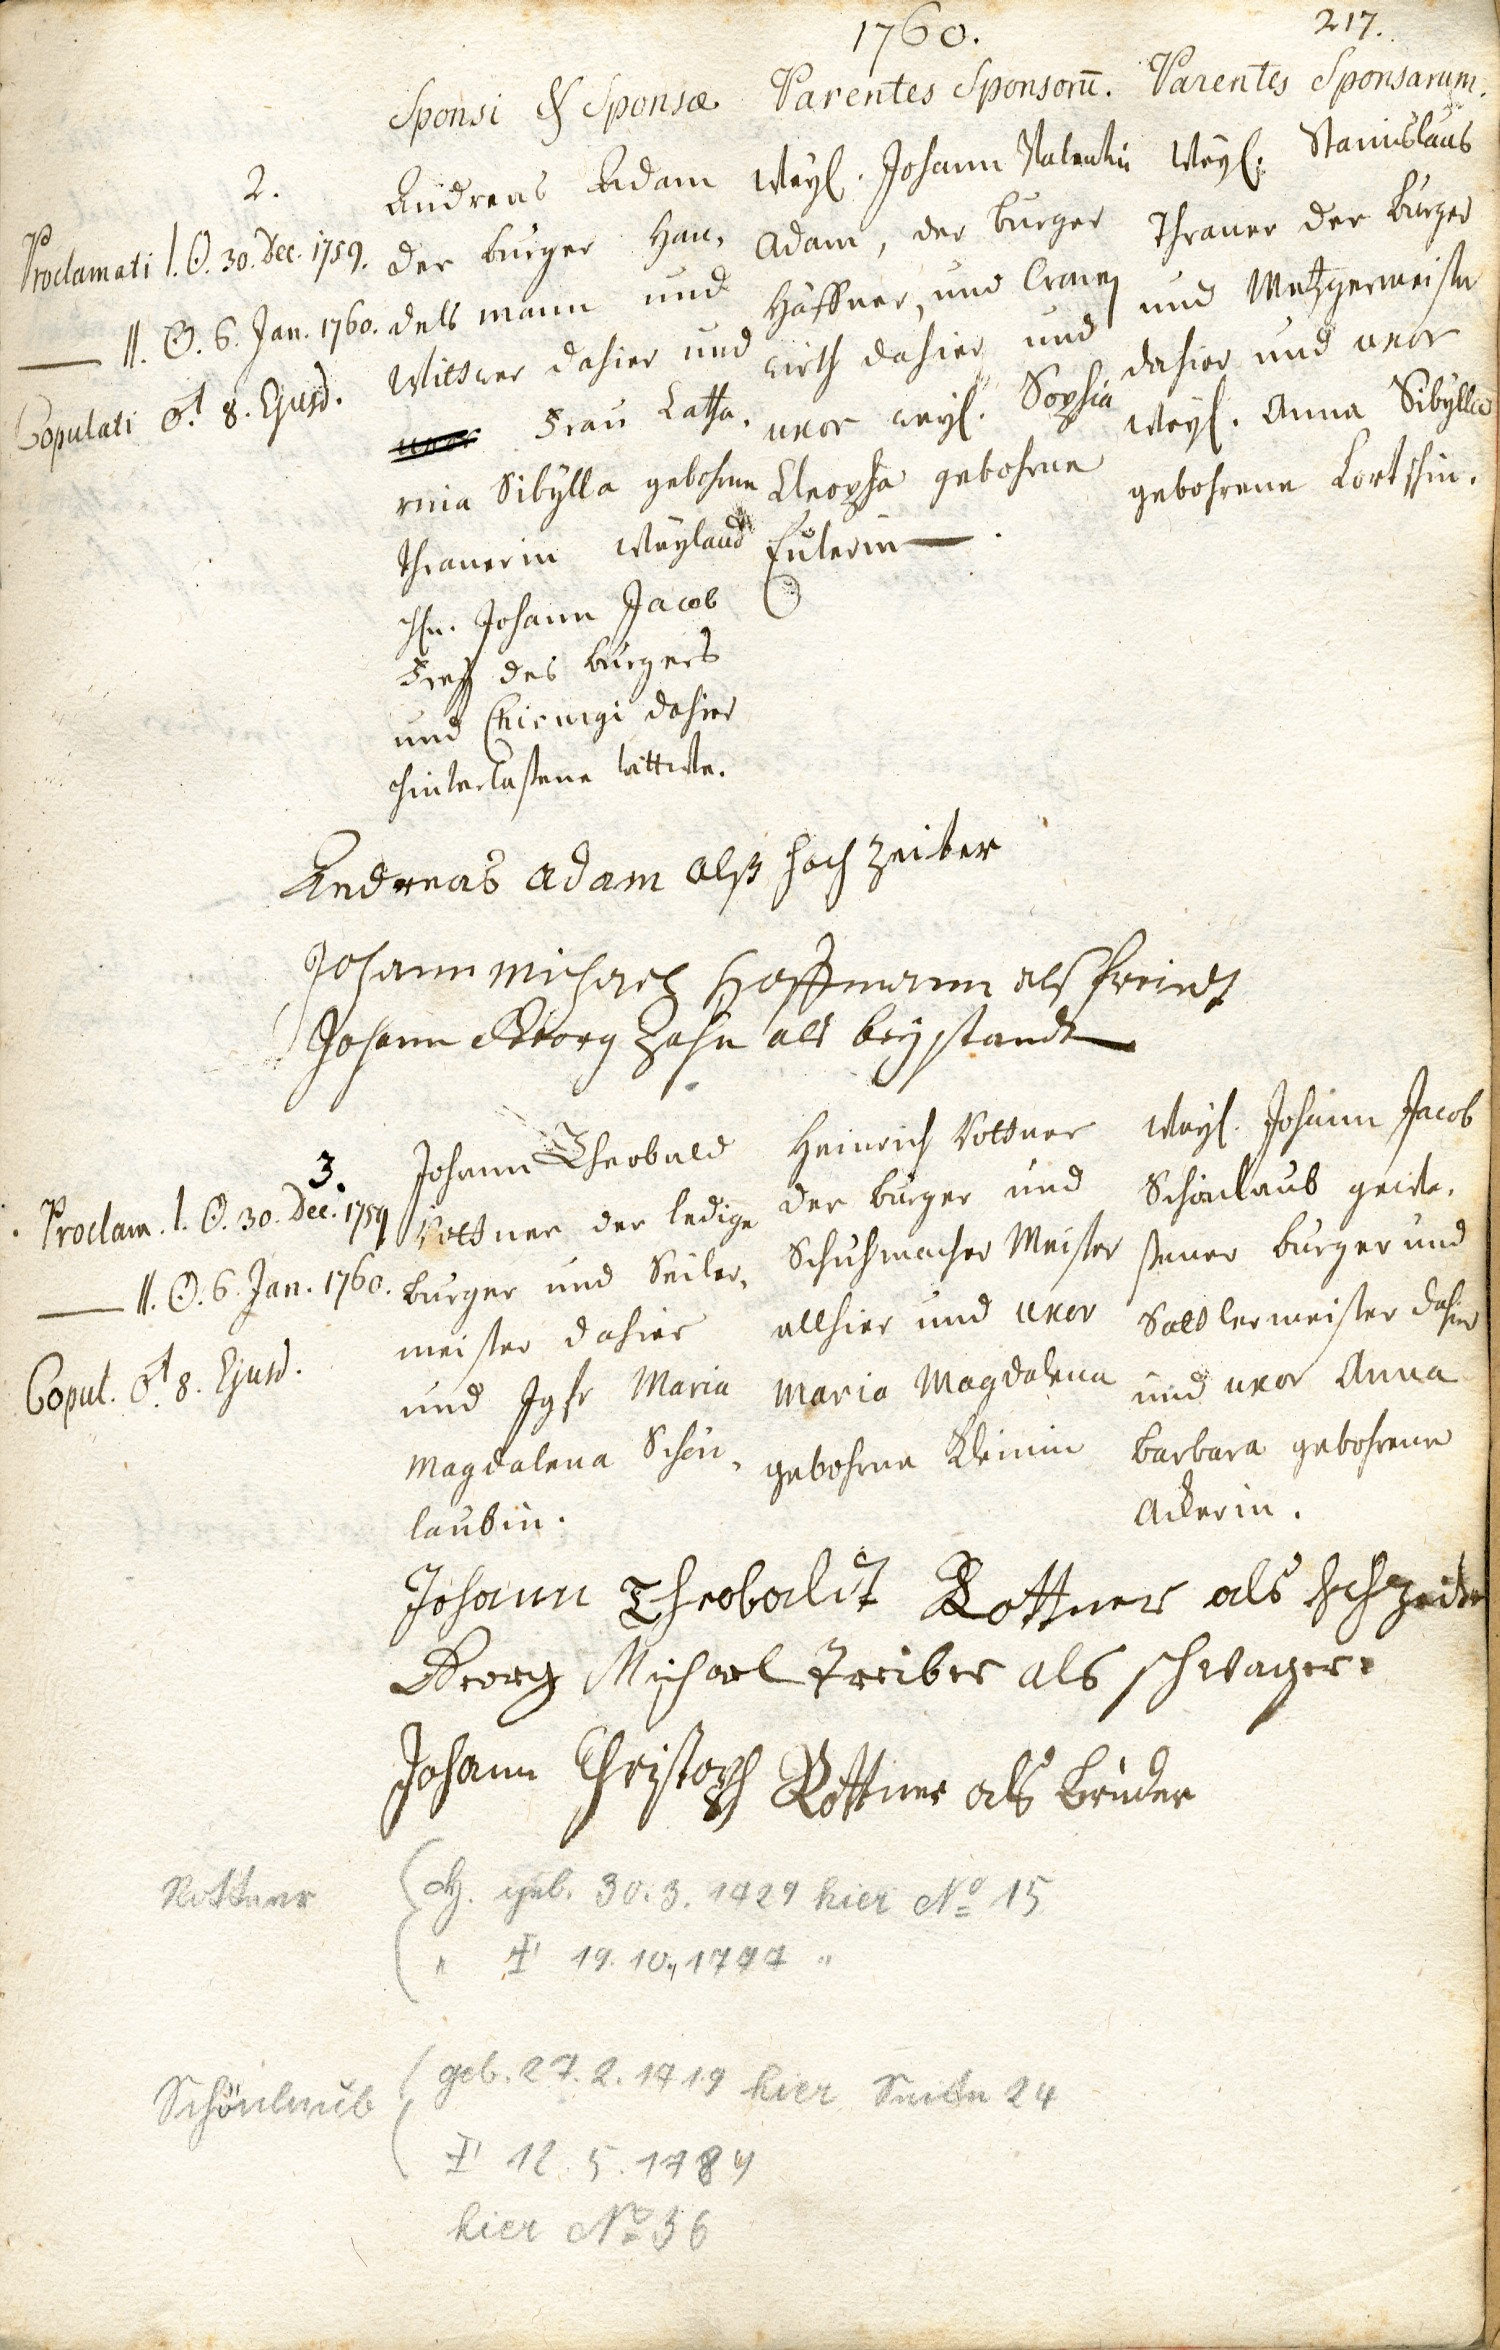 1760.
217.
Sponsi & Sponsæ
Parentes Sponsorū.
Parentes Sponsarum.
2.
Proclamati I. ☉. 30. Dec. 1759.
— II. ☉. 6. Jan. 1760.
Copulati ♂ 8. Ejusd.
Andreas Adam
der burger Han,
dels mann und
Wittwer dahier und
Frau Catha,
rina Sibÿlla gebohrne
Thranerin weÿland
Hn. Johann Jacob
des burgers
und Chirurgi dahier
hinterlaßene wittwe.
Weÿl. Johann Valentin
Adam, der burger
Haffner, und Cronen
wirth dahier und
uxor weÿl. Sophia
Cleopha gebohrne
Eulerin.
Weÿl. Stanislaus
Thraner der burger
und Metzgermeister
dahier und uxor
weÿl. Anna Sibÿlla
gebohrene
Andreas Adam alß hoch zeiter
Johann Michael Hoffmann als freindt
Johann Georg Zahn als beÿstandt
3.
Proclam. I. ☉. 30. Dec. 1759
— II. ☉. 6. Jan. 1760.
Copul. ♂ 8. Ejusd.
Johann Theobald
Rottner der ledige
burger und Seiler,
meister dahier
und Jgfr Maria
Magdalena Schön,
laubin.
Heinrich Rottner
der burger und
Schuhmacher Meister
allhier und uxor
Maria Magdalena
gebohrne Kleinin
Weÿl. Johann Jacob
Schönlaub gewe,
ßener burger und
Sattlermeister dahier
und uxor Anna
Barbara gebohrene
Ackerin.
Johann Theobaldt Rottner als hochzeiter
Georg Michael Treiber als schwager
Johann Christoph Rottner als bruder
Rottner
geb. 30.3. 1729 hier No 15
" † 19. 10. 1777 "
Schönlaub
geb. 27. 2. 1719 hier Seite 24
† 12. 5. 1784
hier No 36